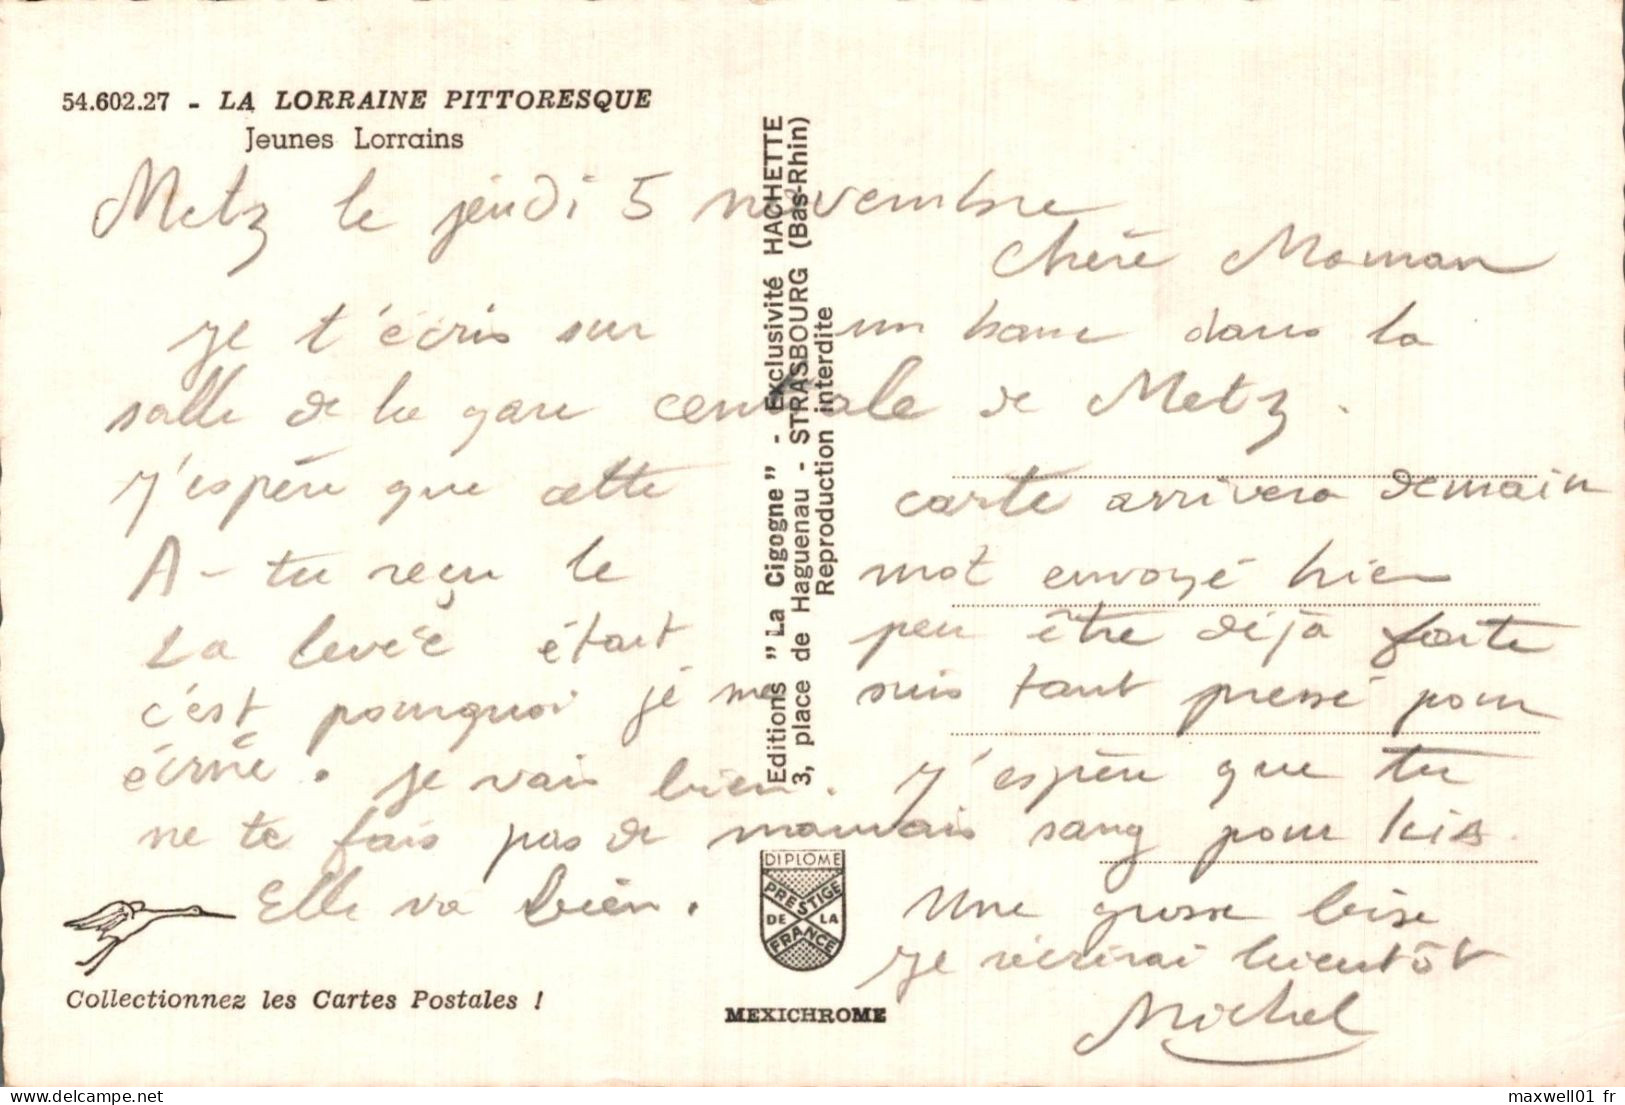 54.602.27 - LA LORRAINE PITTORESQUE
Jeunes Lorrains
Metz le jeudi 5 novembre
Chère Maman
Je t'écris sur un banc dans la
salle de la gare centrale de Metz.
J'espère que cette carte arrivera demain
A-tu reçu le mot envoyé hier
La levée était peu être déjà faite
c'est pourquoi je me suis tant pressé pour
écrire. Je vais bien. J'espère que tu
ne te fais pas de mauvais sang pour
Elle va bien. Une grosse bise
Je récrirai bientôt
Michel
Editions "La Cigogne" - Exclusivité HACHETTE
3, place de Haguenau - STRASBOURG (Bas-Rhin)
Reproduction interdite
DIPLOME
PRESTIGE
DE LA
FRANCE
Collectionnez les Cartes Postales !
MEXICHROME
maxwell01 fr